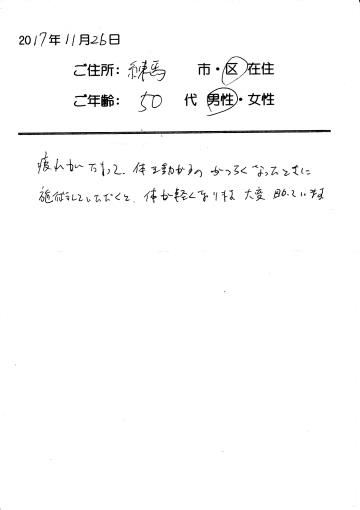 2017年11月26日
ご住所: 練馬 市・区 在住
ご年齢: 50 代 男性・女性
疲れがたまって、体を動かすのがつらくなったときに
施術していただくと、体が軽くなります 大変助かっています